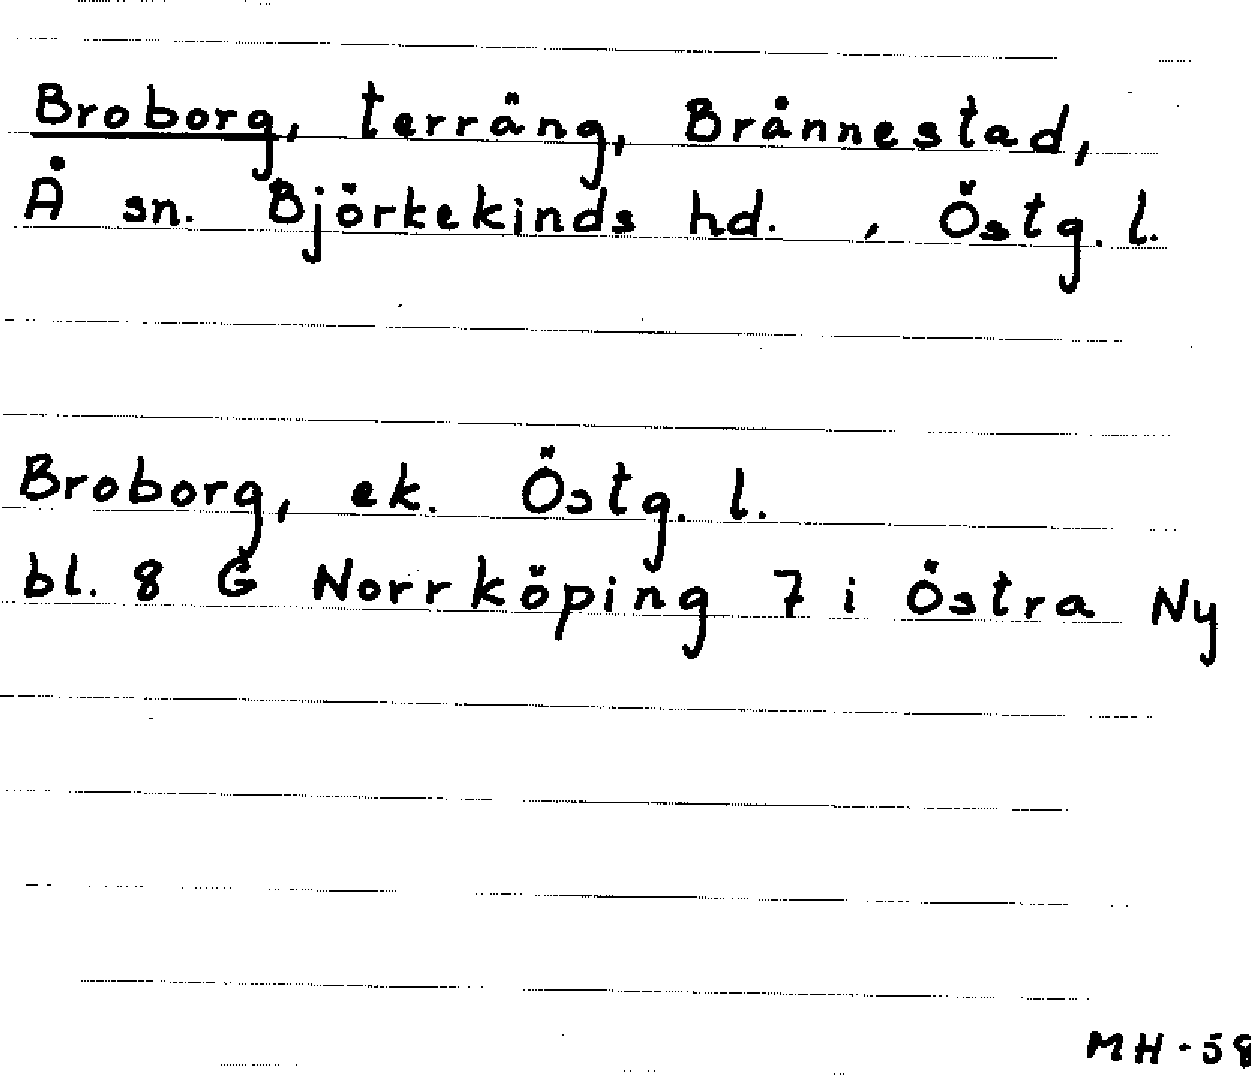 Broborg, terräng, Brånnestad,
Å sn. Björkekinds hd. , Östg. l.
Broborg, ek. Östg. l.
bl. 8 G Norrköping 7 i Östra Ny
MH-58